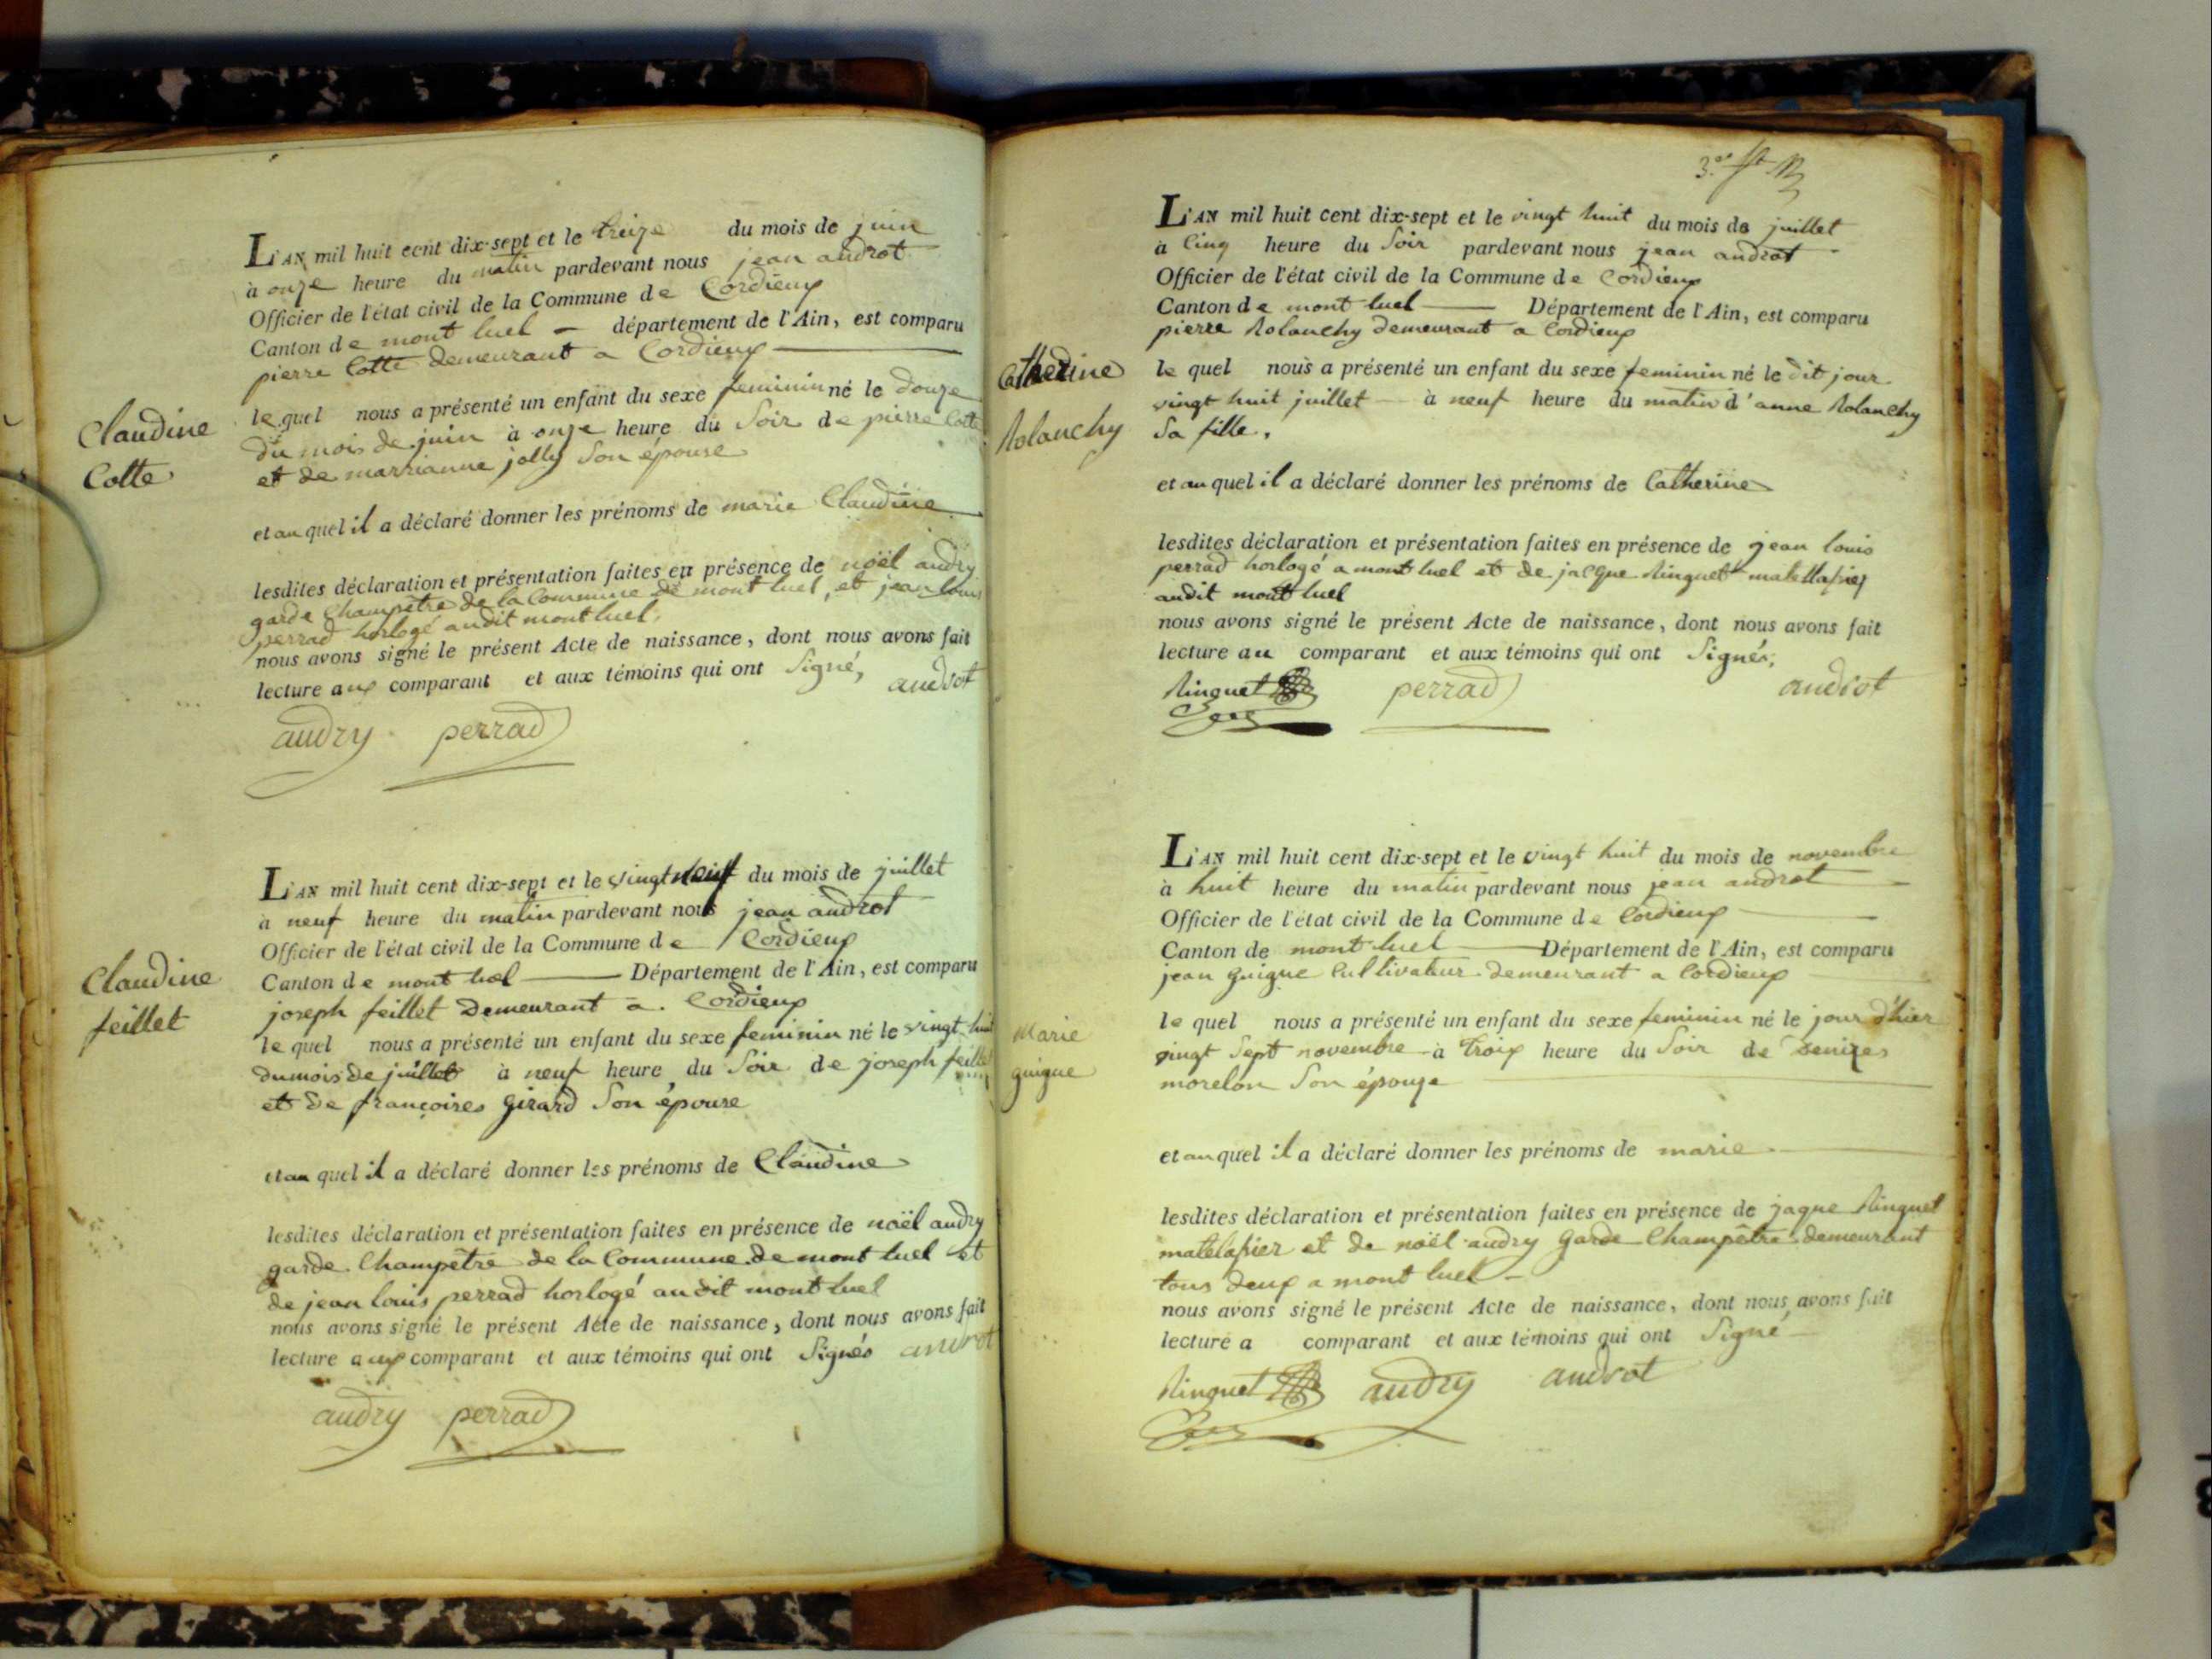 L'AN mil huit cent dix-sept et le treize du mois de juin
à onze heure du matin pardevant nous jean androt
Officier de l'état civil de la Commune de Cordieux
Canton de mont luel — département de l'Ain, est comparu
pierre Cotte demeurant a Cordieux
Claudine
Cotte
le quel nous a présenté un enfant du sexe feminin né le douze
du mois de juin à onze heure du Soir de pierre Cotte
et de marrianne jolly Son épouse
et au quel il a déclaré donner les prénoms de marie Claudine
lesdites déclaration et présentation faites en présence de noël audry
garde Champêtre de la Commune de mont luel, et jean louis
perrad horlogé audit mont luel,
nous avons signé le présent Acte de naissance, dont nous avons fait
lecture aux comparant et aux témoins qui ont Signé,
androt
audry perrad
L'AN mil huit cent dix-sept et le vingt neuf du mois de juillet
à neuf heure du matin pardevant nous jean androt
Officier de l'état civil de la Commune de Cordieux
Canton de mont luel — Département de l'Ain, est comparu
joseph feillet Demeurant a Cordieux
Claudine
feillet
le quel nous a présenté un enfant du sexe feminin né le vingt huit
du mois de juillet à neuf heure du Soir de joseph feillet
et de françoises girard Son épouse
et au quel il a déclaré donner les prénoms de Claudine
lesdites déclaration et présentation faites en présence de noël audry
garde Champêtre de la Commune de mont luel et
de jean louis perrad horlogé audit mont luel
nous avons signé le présent Acte de naissance, dont nous avons fait
lecture aux comparant et aux témoins qui ont Signés androt
audry perrad
L'AN mil huit cent dix-sept et le vingt huit du mois de juillet
à Cinq heure du Soir pardevant nous jean androt
Officier de l'état civil de la Commune de Cordieux
Canton de mont luel — Département de l'Ain, est comparu
pierre Rolanchy demeurant a Cordieux
Catherine
Rolanchy
le quel nous a présenté un enfant du sexe feminin né le dit jour
vingt huit juillet — à neuf heure du matin d'anne Rolanchy
Sa fille,
et au quel il a déclaré donner les prénoms de Catherine
lesdites déclaration et présentation faites en présence de jean louis
perrad horlogé a mont luel et de jacque Ringuet
audit mont luel
nous avons signé le présent Acte de naissance, dont nous avons fait
lecture au comparant et aux témoins qui ont Signés,
Ringuet perrad androt
L'AN mil huit cent dix-sept et le vingt huit du mois de novembre
à huit heure du matin pardevant nous jean androt
Officier de l'état civil de la Commune de Cordieux
Canton de mont luel — Département de l'Ain, est comparu
jean guigue Cultivateur demeurant a Cordieux
Marie
guigue
le quel nous a présenté un enfant du sexe feminin né le jour d'hier
vingt Sept novembre à troix heure du Soir de denizes
morelon Son épouze
et au quel il a déclaré donner les prénoms de marie
lesdites déclaration et présentation faites en présence de jaque Ringuet
matelassier et de noël audry garde Champêtre demeurant
tous deux a mont luel —
nous avons signé le présent Acte de naissance, dont nous avons fait
lecture a comparant et aux témoins qui ont Signé —
Ringuet audry androt